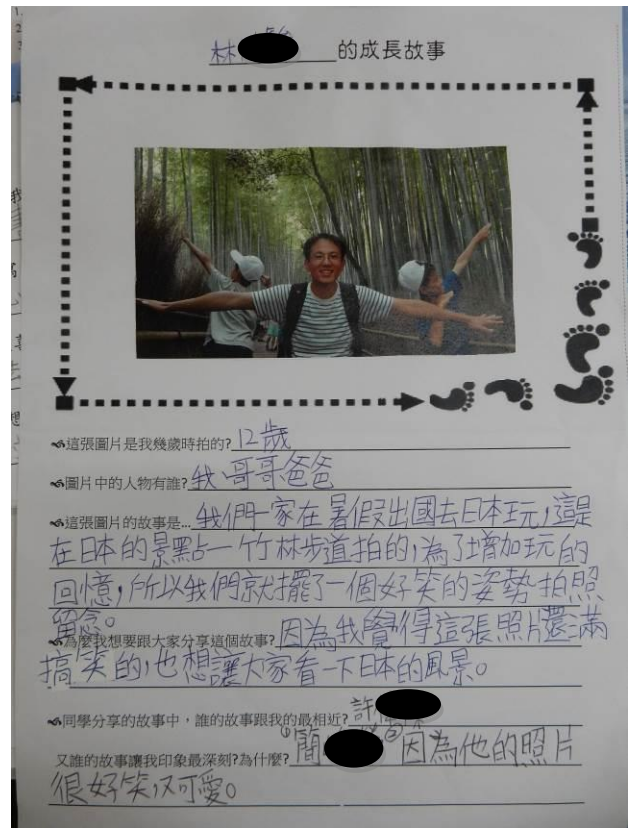 林 的成長故事
這張圖片是我幾歲時拍的?12歲
圖片中的人物有誰?我、哥哥爸爸
這張圖片的故事是...我們一家在暑假出國去日本玩,這是
在日本的景點—竹林步道拍的,為了增加玩的
回憶,所以我們就擺了一個好笑的姿勢拍照
留念。
為麼我想要跟大家分享這個故事?因為我覺得這張照片還滿
搞笑的,也想讓大家看一下日本的風景。
同學分享的故事中,誰的故事跟我的最相近?許
又誰的故事讓我印象最深刻?為什麼?①簡 ②因為他的照片
很好笑,又可愛。